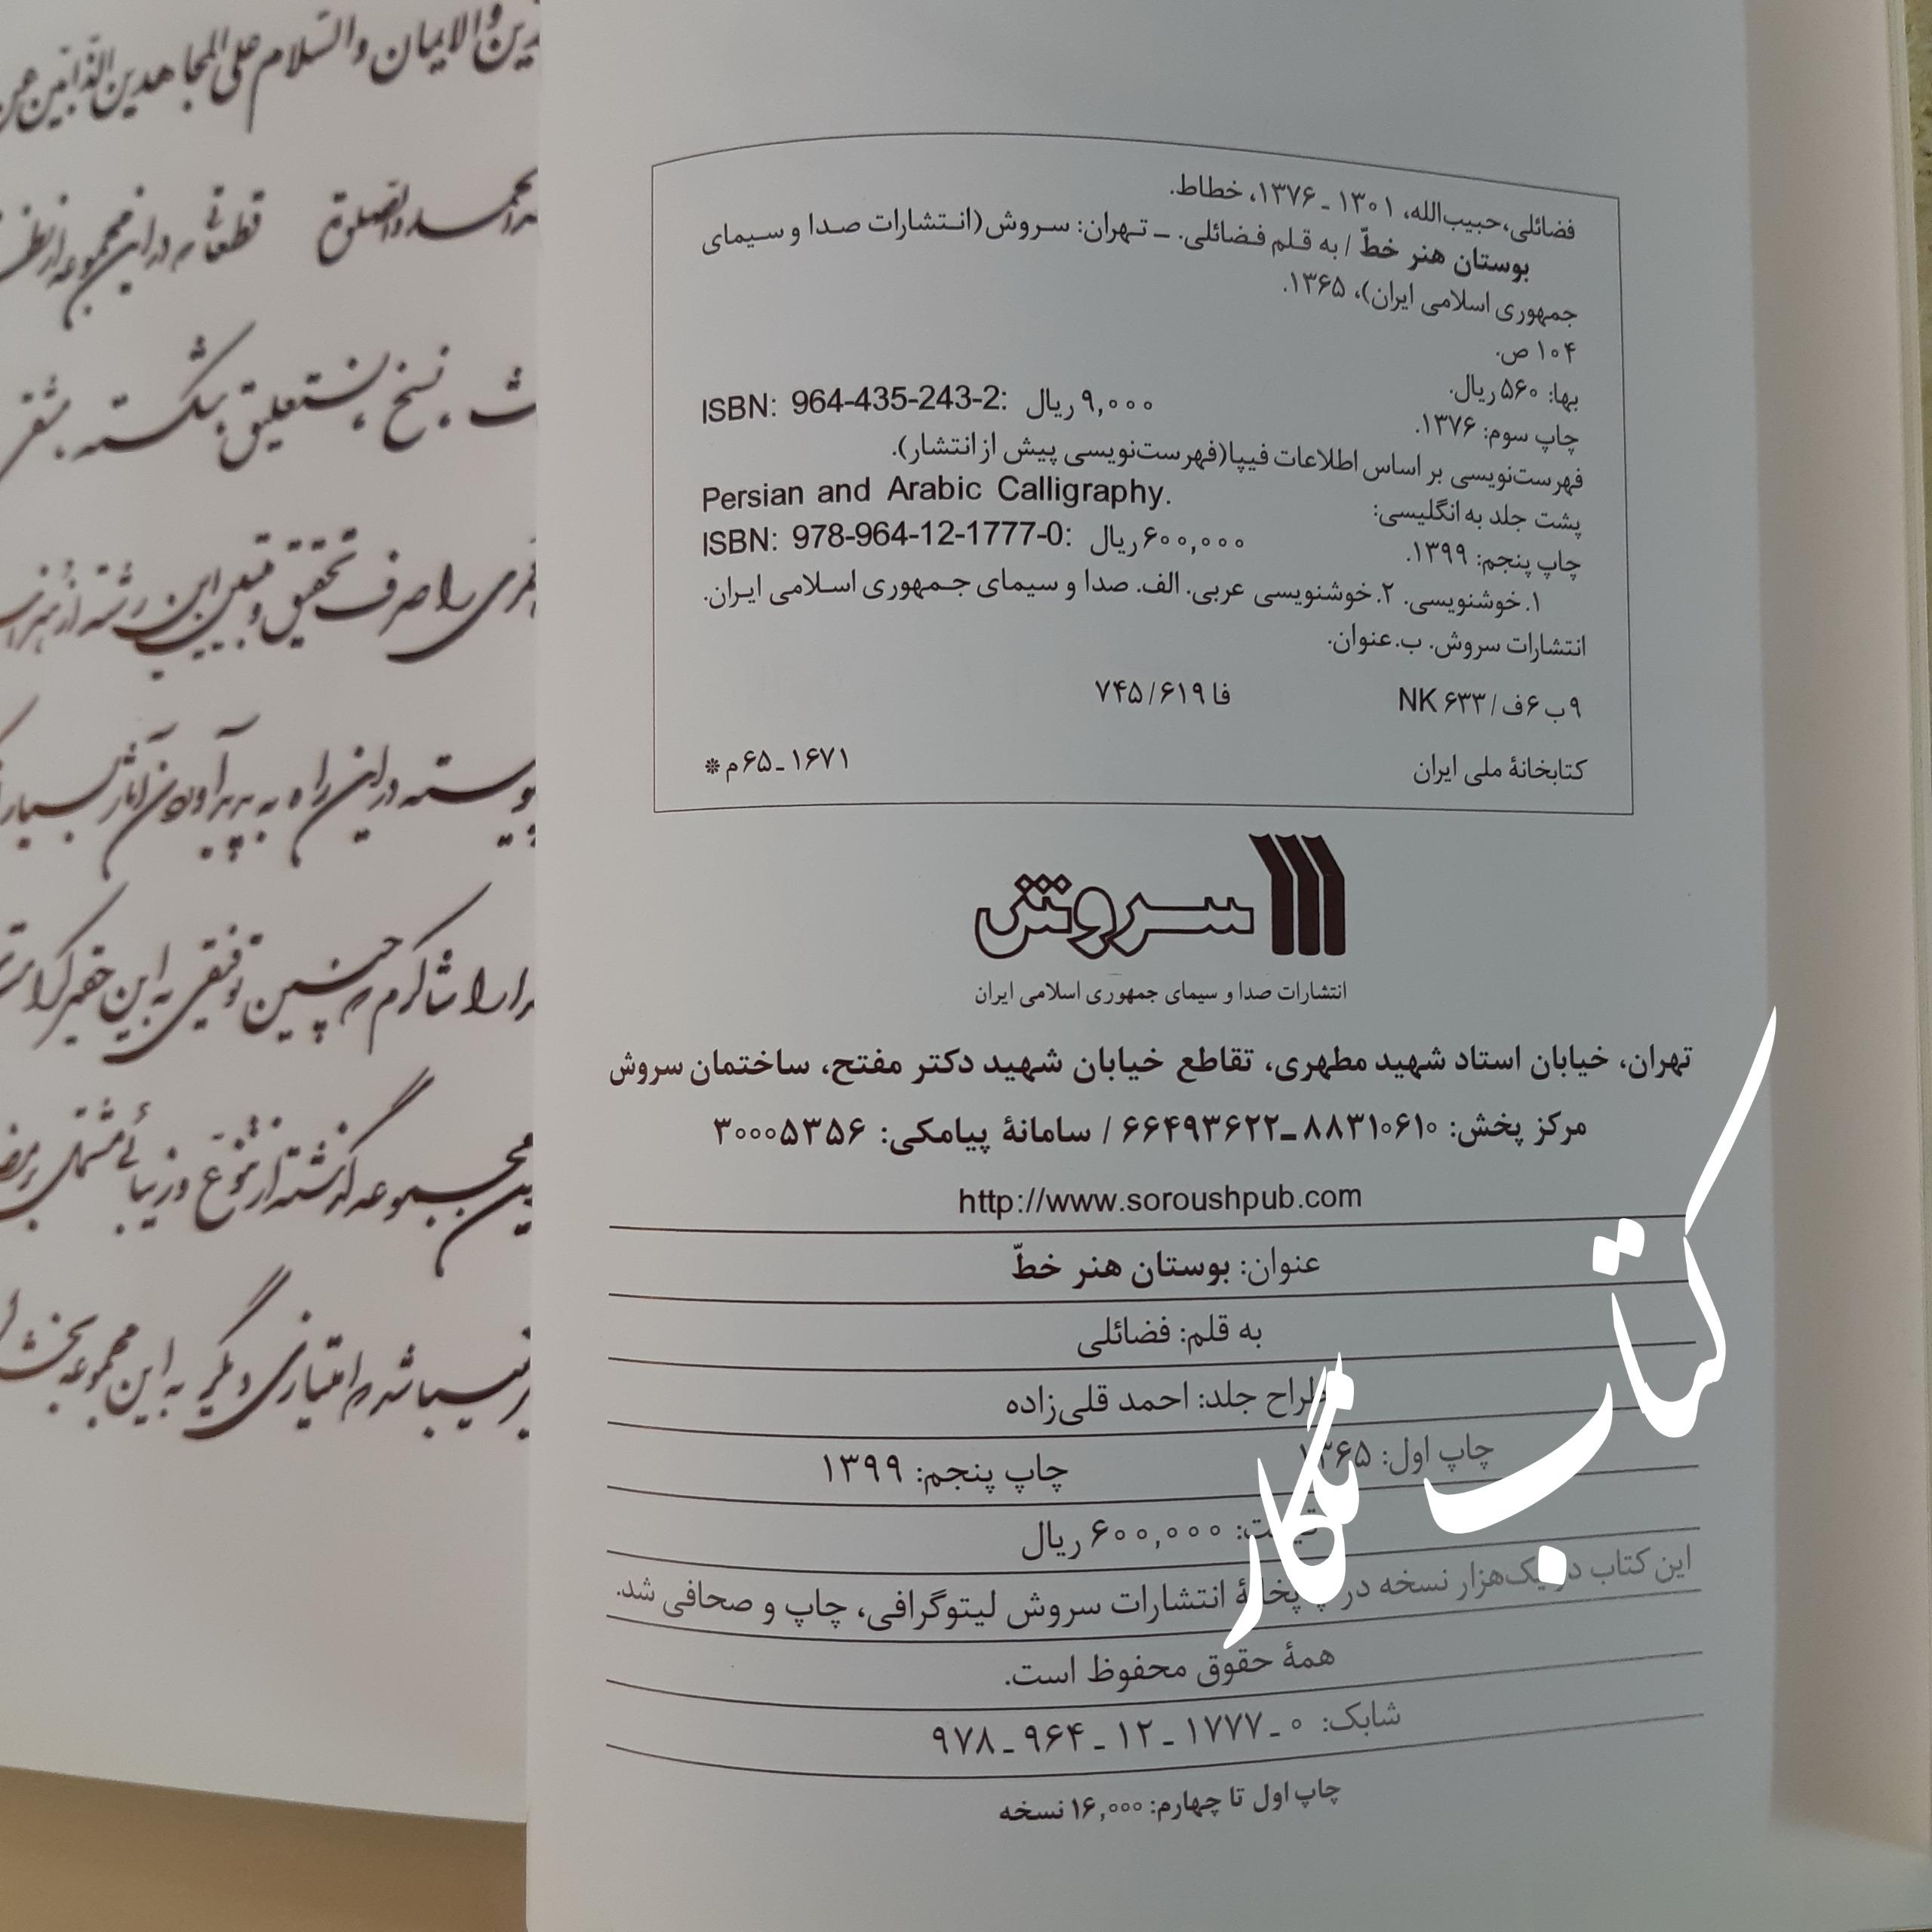 فضائلی، حبیب‌الله، ۱۳۰۱ ـ ۱۳۷۶، خطاط.
بوستان هنر خطّ / به قلم فضائلی. ـ تهران: سروش (انتشارات صدا و سیمای
جمهوری اسلامی ایران)، ۱۳۶۵.
۱۰۴ ص.
بها: ۵۶۰ ریال.
ISBN: 964-435-243-2: ۹,۰۰۰ ریال
چاپ سوم: ۱۳۷۶.
فهرست‌نویسی بر اساس اطلاعات فیپا (فهرست‌نویسی پیش از انتشار).
پشت جلد به انگلیسی: Persian and Arabic Calligraphy.
چاپ پنجم: ۱۳۹۹. ISBN: 978-964-12-1777-0: ۶۰۰,۰۰۰ ریال
۱. خوشنویسی. ۲. خوشنویسی عربی. الف. صدا و سیمای جمهوری اسلامی ایران.
انتشارات سروش. ب. عنوان.
۹ب۶ف / NK ۶۳۳ فا ۷۴۵/۶۱۹
کتابخانهٔ ملی ایران ۱۶۷۱ ـ ۶۵م *
سروش
انتشارات صدا و سیمای جمهوری اسلامی ایران
تهران، خیابان استاد شهید مطهری، تقاطع خیابان شهید دکتر مفتح، ساختمان سروش
مرکز پخش: ۸۸۳۱۰۶۱۰ ـ ۶۶۴۹۳۶۲۲ / سامانهٔ پیامکی: ۳۰۰۰۵۳۵۶
http://www.soroushpub.com
عنوان: بوستان هنر خطّ
به قلم: فضائلی
طراح جلد: احمد قلی‌زاده
چاپ اول: ۱۳۶۵ چاپ پنجم: ۱۳۹۹
قیمت: ۶۰۰,۰۰۰ ریال
این کتاب در یک‌هزار نسخه در چاپخانهٔ انتشارات سروش لیتوگرافی، چاپ و صحافی شد.
همهٔ حقوق محفوظ است.
شابک: ۰ ـ ۱۷۷۷ ـ ۱۲ ـ ۹۶۴ ـ ۹۷۸
چاپ اول تا چهارم: ۱۶,۰۰۰ نسخه
کتاب نگار
دین والایمان والسّلام علی المجاهدین الذّابّین عن
والصّلوة قطعاتی که در این مجموعه از نظر
نسخ، نستعلیق، شکسته،
را صرف تحقیق و این رشته از هنر
پیوسته در این راه به پدید آوردن آثار بسیار
را شاکرم که چنین توفیقی به این حقیر
این مجموعه گذشته از تنوّع و زیبائی مشتمل بر
میباشد که امتیازی دیگر به این مجموعه